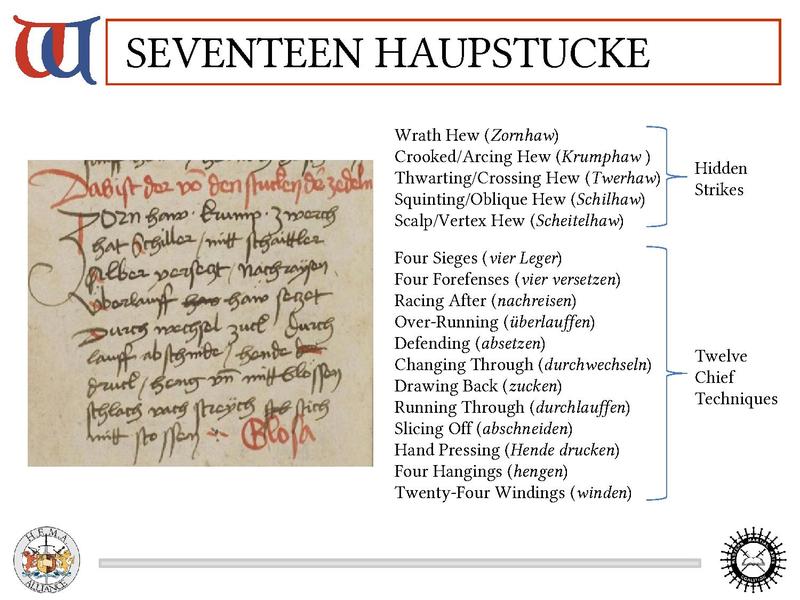 SEVENTEEN HAUPSTUCKE
Das ist der vō den stucken der zedeln
Zorn haw · krump · zwerch
hat Schiller / mitt schaittler
Alber versetzt / Nachraÿsen
überlauff haw setzet
Durch wechsel zuck / Durch
lauff abschnide / hende
druck / heng vn̄ mitt
schlach vach streÿch stich
mitt stossen Glosa
Wrath Hew (Zornhaw)
Crooked/Arcing Hew (Krumphaw )
Thwarting/Crossing Hew (Twerhaw)
Squinting/Oblique Hew (Schilhaw)
Scalp/Vertex Hew (Scheitelhaw)
Hidden
Strikes
Four Sieges (vier Leger)
Four Forefenses (vier versetzen)
Racing After (nachreisen)
Over-Running (überlauffen)
Defending (absetzen)
Changing Through (durchwechseln)
Drawing Back (zucken)
Running Through (durchlauffen)
Slicing Off (abschneiden)
Hand Pressing (Hende drucken)
Four Hangings (hengen)
Twenty-Four Windings (winden)
Twelve
Chief
Techniques
H.E.M.A.
ALLIANCE